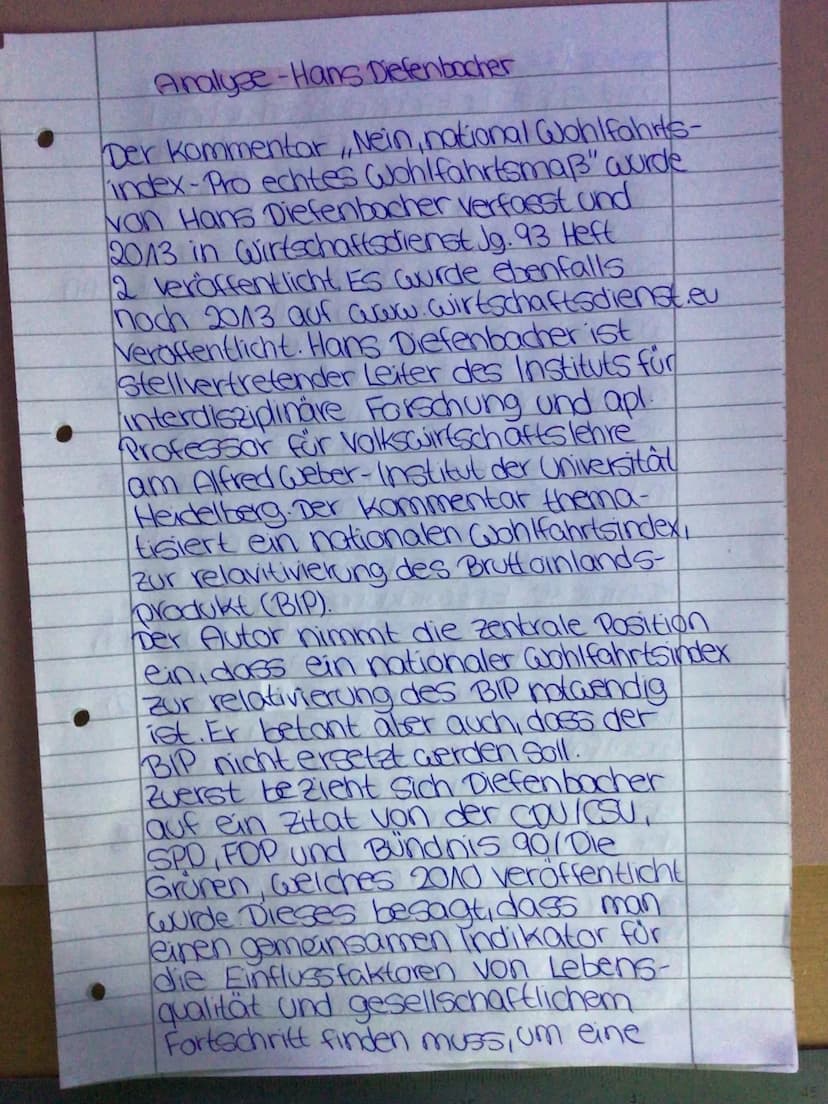 Analyse - Hans Diefenbacher
Der Kommentar „Nein, national Wohlfahrts-
index - Pro echtes Wohlfahrtsmaß" wurde
von Hans Diefenbacher verfasst und
2013 in Wirtschaftsdienst Jg. 93 Heft
2 veröffentlicht. Es wurde ebenfalls
noch 2013 auf www.wirtschaftsdienst.eu
veröffentlicht. Hans Diefenbacher ist
stellvertretender Leiter des Instituts für
interdisziplinäre Forschung und apl.
Professor für Volkswirtschaftslehre
am Alfred Weber-Institut der Universität
Heidelberg. Der Kommentar thema-
tisiert ein nationalen Wohlfahrtsindex,
zur relavitivierung des Bruttoinlands-
produkt (BIP).
Der Autor nimmt die zentrale Position
ein, dass ein nationaler Wohlfahrtsindex
zur relativierung des BIP notwendig
ist. Er betont aber auch, dass der
BIP nicht ersetzt werden soll.
Zuerst bezieht sich Diefenbacher
auf ein Zitat von der CDU/CSU,
SPD, FDP und Bündnis 90/Die
Grünen, welches 2010 veröffentlicht
wurde. Dieses besagt, dass man
einen gemeinsamen Indikator für
die Einflussfaktoren von Lebens-
qualität und gesellschaftlichem
Fortschritt finden muss, um eine